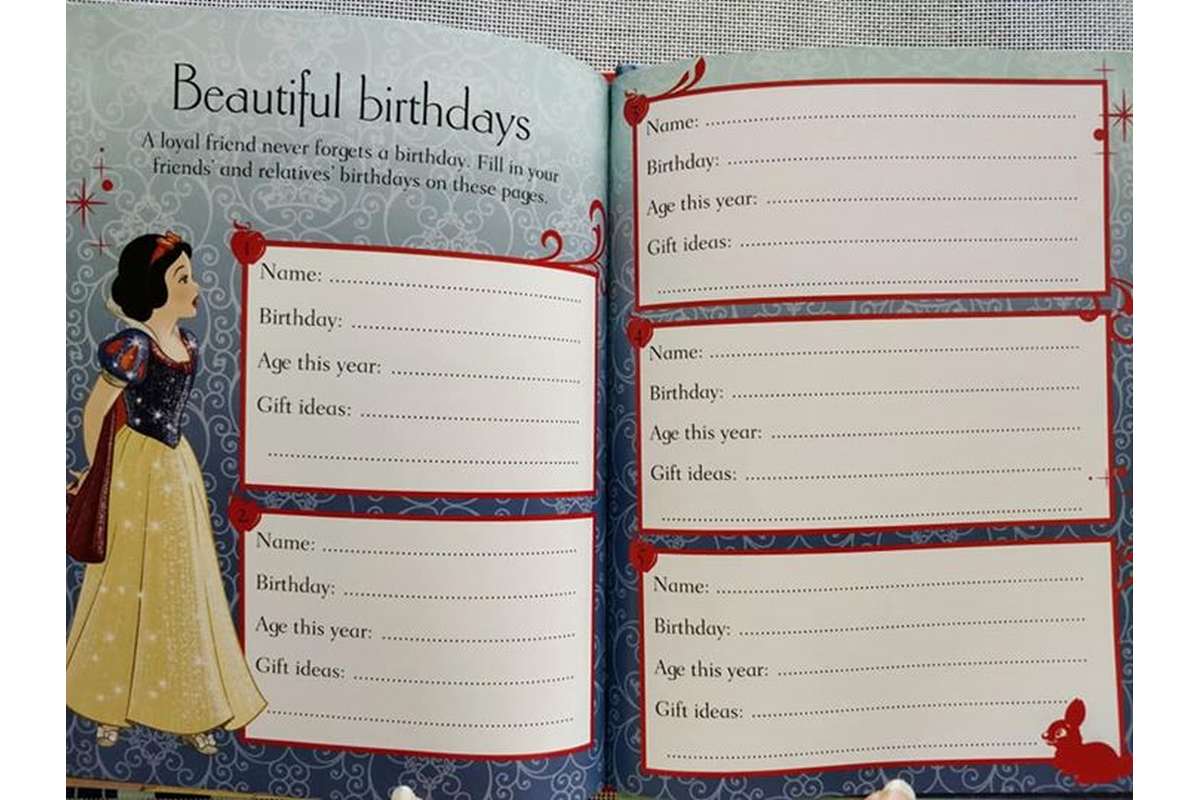 Beautiful birthdays
A loyal friend never forgets a birthday. Fill in your
friends' and relatives' birthdays on these pages.
1
Name:
Birthday:
Age this year:
Gift ideas:
2
Name:
Birthday:
Age this year:
Gift ideas:
3
Name:
Birthday:
Age this year:
Gift ideas:
4
Name:
Birthday:
Age this year:
Gift ideas:
5
Name:
Birthday:
Age this year:
Gift ideas: